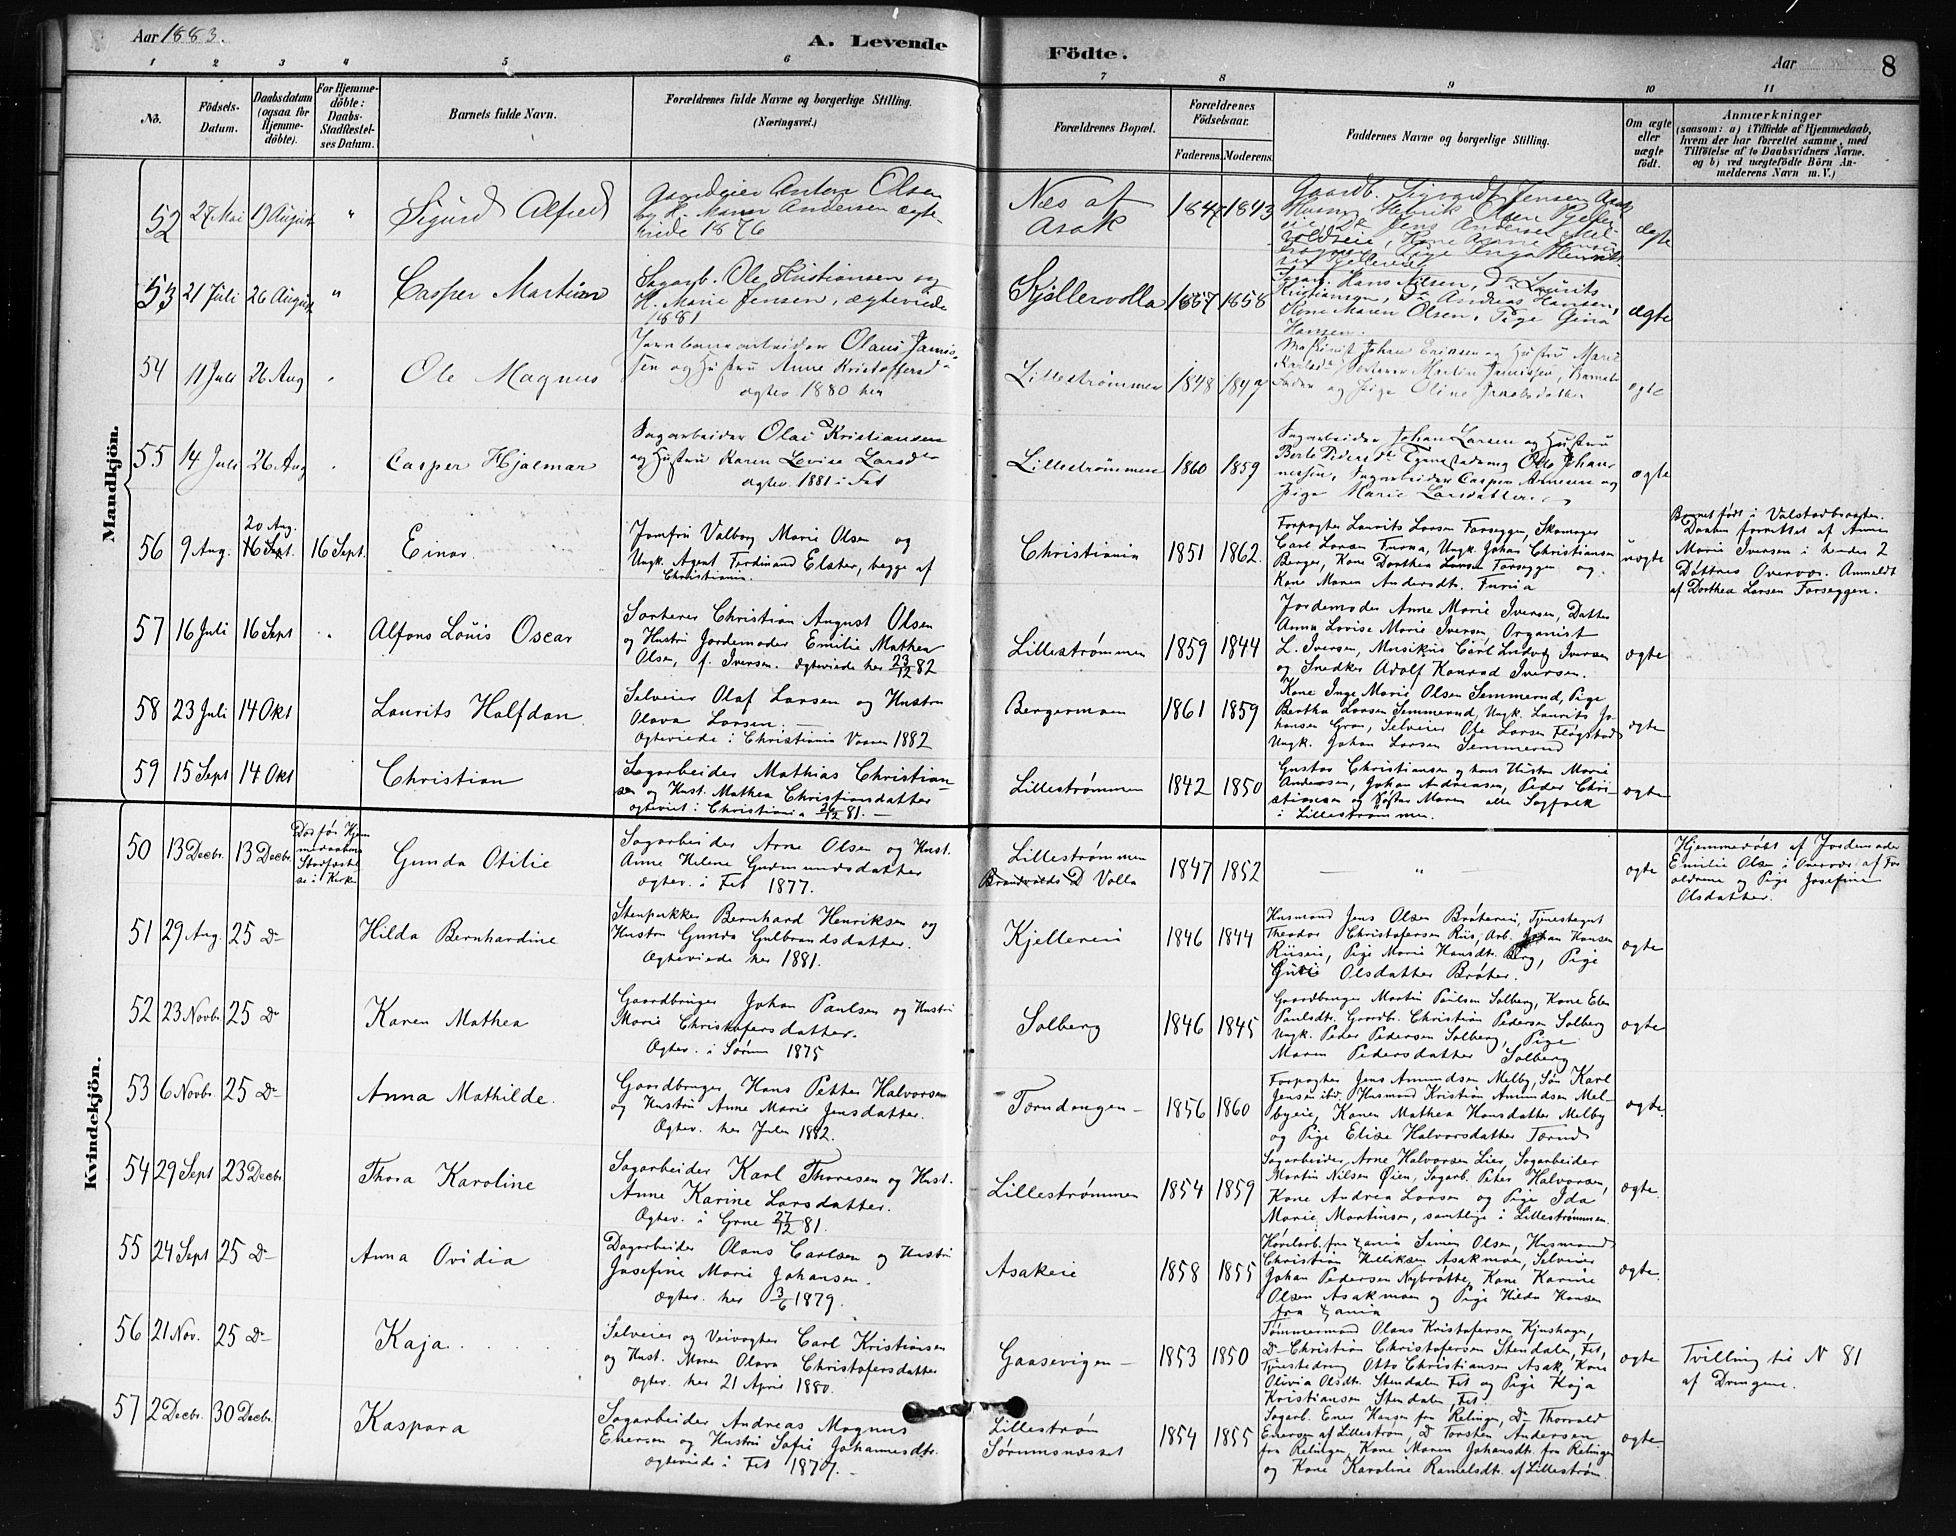 Aar 1883.
A. Levende
Födte.
Aar
8
1 2 3 4 5 6 7 8 9 10 11
No.
Födsels-
Datum.
Daabsdatum
(ogsaa for
Hjemme-
döbte).
For Hjemme-
döbte:
Daabs-
Stadfæstel-
ses Datum.
Barnets fulde Navn.
Forældrenes fulde Navne og borgerlige Stilling.
(Næringsvei.)
Forældrenes Bopæl.
Forældrenes
Födselsaar.
Faderens. Moderens.
Faddernes Navne og borgerlige Stilling.
Om ægte
eller
uægte
födt.
Anmærkninger
(saasom: a) i Tilfælde af Hjemmedaab,
hvem der har forrettet samme, med
Tilföielse af to Daabsvidners Navne.
og b) ved uægtefödte Börn An-
melderens Navn m. V.)
Mandkjön.
52 27 Mai 19 August " Sigurd Alfred
Gaardeier Anton Olsen
Maren Andersen ægte-
viede 1876
Næs af
Asak
1843
Gaardb. Sigvardt Jensen Asak
Henrik Olsen
Jens Andersen
ægte
53 21 Juli 26 August " Casper Martin
Sagarb. Ole Kristiansen og
H. Marie Jensen, ægteviede
1881
Kjellervolla
1857 1858
Sagarb. Hans Nilsen, Do Laurits
Kristiansen, Do Andreas Hansen,
Kone Maren Olsen, Pige Gina
Hansen.
ægte
54 11 Juli 26 Aug " Ole Magnus
Jernbanearbeider Olaus Janis-
sen og Hustru Anne Kristoffersd
ægtev 1880 her
Lillestrømmen
1848 1847
Maskinist Johan Eriksen og Hustru Marie
Martin Janissen, Barnets
Fader og Pige Oline Jacobsdatter
ægte
55 14 Juli 26 Aug " Casper Hjalmar
Sagarbeider Olai Kristiansen
og Hustru Karen Lovise Larsdr
ægtev. 1881 i Fet
Lillestrømmen
1860 1859
Sagarbeider Johan Larsen og Hustru
Berte Pedersdr Tjenestedreng Otto Johan-
nessen, Sagarbeider Casper Arnesen og
Pige Marie Larsdatter.
ægte
56 9 Aug. 20 Aug. 16 Sept. 16 Sept. Einar.
Jomfru Valborg Marie Olsen og
Ungk. Agent Ferdinand Elster, begge af
Christiania.
Christiania
1851 1862
Forpagter Laurits Larsen Farseggen, Skomager
Carl Larsen Furua, Ungk. Johan Christiansen
Berger, Kone Dorthea Larsen Farseggen og
Kone Maren Andersdt. Furua
uægte
Barnet født i Valstadbraaten.
Daaben forrettet af Anne
Marie Iversen i hendes 2
Døttres Overvær. Anmeldt
af Dorthea Larsen Farseggen.
57 16 Juli 16 Sept " Alfons Louis Oscar
Sorterer Christian August Olsen
og Hustru Jordemoder Emilie Mathea
Olsen, f. Iversen. ægteviede her 23/12 82
Lillestrømmen
1859 1844
Jordemoder Anne Marie Iversen, Datter
Anna Lovise Marie Iversen, Organist
L. Iversen, Musikus Carl Ludvig Iversen
og Snedker Adolf Konrad Iversen.
ægte
58 23 Juli 14 Okt Laurits Halfdan.
Selveier Olaf Larsen og Hustru
Olava Larsen.
Ægteviede i Christiania Vaaren 1882
Bergermoen
1861 1859
Kone Inge Marie Olsen Semmerud, Pige
Bertha Larsen Semmerud, Ungk. Laurits Jo-
hansen Gran, Selveier Ole Larsen Flogstad
Ungk. Johan Larsen Semmerud
ægte
59 15 Sept 14 Okt Christian
Sagarbeider Mathias Christian-
sen og Hust. Mathea Christiansdatter
ægteviet i Christiania 26/12 81.
Lillestrømmen
1842 1850
Gustav Christiansen og hans Hustru Marie
Andersen, Johan Andreasen, Peder Chri-
stiansen og Søster Maren alle Sagfolk
i Lillestrømmen.
ægte
Kvindekjön.
50 13 Decbr. 13 Decbr.
Død før Hjem-
medaabens
Stadfæstel-
se i Kirken
Gunda Otilie
Sagarbeider Arne Olsen og Hust.
Anne Helene Gudmundsdatter
ægtev. i Fet 1877.
Lillestrømmen
D Volla
1847 1852
— " —
ægte
Hjemmedøbt af Jordemoder
Emilie Olsen i Overvær af For-
ældrene og Pige Josefine
Olsdatter.
51 29 Aug. 25 D- Hilda Bernhardine
Stenpukker Bernhard Henriksen og
Hustru Gunda Gulbrandsdatter.
Ægteviede her 1881.
Kjellereie
1846 1844
Husmand Jens Olsen Bråtereie, Tjenestegut
Theodor Christofersen Riis, Arb. Johan Hansen
Riiseie, Pige Marie Hansdt. Berg, Pige
Olsdatter Bråter.
ægte
52 23 Novbr. 25 D- Karen Mathea
Gaardbruger Johan Paulsen og Hustru
Marie Christofersdatter.
Ægtev. i Sørum 1875
Solberg
1846 1845
Gaardbruger Martin Paulsen Solberg, Kone Elen
Paulsdt. Gaardb. Christian Pedersen Solberg
Ungk. Peder Pedersen Solberg, Pige
Maren Pedersdatter Solberg
ægte
53 6 Novbr. 25 D- Anna Mathilde.
Gaardbruger Hans Petter Halvorsen
og Hustru Anne Marie Jensdatter.
Ægtev. her Julen 1882.
Tærudengen
1856 1860
Forpagter Jens Amundsen Melby, Søn Karl
Jensen ibd. Husmand Kristian Amundsen Mel-
byeie, Konen Mathea Hansdatter Melby
og Pige Elise Halvorsdatter Tærud
ægte.
54 29 Sept 23 Decbr Thora Karoline
Sagarbeider Karl Thoresen og Hust.
Anne Karine Larsdatter.
Ægtev. i Grue 27/12 81.
Lillestrømmen
1854 1859
Sagarbeider Arne Halvorsen Lier, Sagarbeider
Martin Nilsen Øien, Sagarb. Peter Halvorsen,
Kone Andrea Larsen og Pige Ida
Marie Martinsen, samtlige i Lillestrømmen.
ægte.
55 24 Sept 25 D- Anna Ovidia
Dagarbeider Olaus Carlsen og Hustru
Josefine Marie Johansen.
Ægtev. her 3/6 1879.
Asakeie
1858 1855
Høvlarb. fra Xania Simen Olsen, Husmand
Christian Kelliksen Asakmoen, Selveier
Johan Pedersen Nybråtte, Kone Karine
Olsen Asakmoen og Pige Hilda Hansen
fra Xania
ægte.
56 21 Nov. 25 D- Kaja.
Selveier og Veivogter Carl Kristiansen
og Hust. Maren Olava Christofersdatter
Ægtev. her 21 April 1880.
Gaasevigen
1853 1850
Tømmermand Olaus Kristofersen Kjushagen,
D- Christian Christofersen Stendalen, Fet,
Tjenestedreng Otto Christiansen Asak, Kone
Olivia Olsdt. Stendalen Fet og Pige Kaja
Kristiansen Stendalen, Fet.
ægte
Tvilling til N 81
af Drengene.
57 2 Decbr. 30 Decbr. Kaspara
Sagarbeider Andreas Magnus
Enersen og Hustru Sofie Johannesdt.
ægteviede i Fet 1877.
Lillestrøm
Sørumsnesset
1854 1855
Sagarb. Ener Hansen fra Relingen, D- Thorvald
Enersen af Lillestrøm, D Torsten Andersen
fra Relingen, Kone Maren Johansdt. fra Relingen
og Kone Karoline Ramelsdt. af Lillestrøm.
ægte